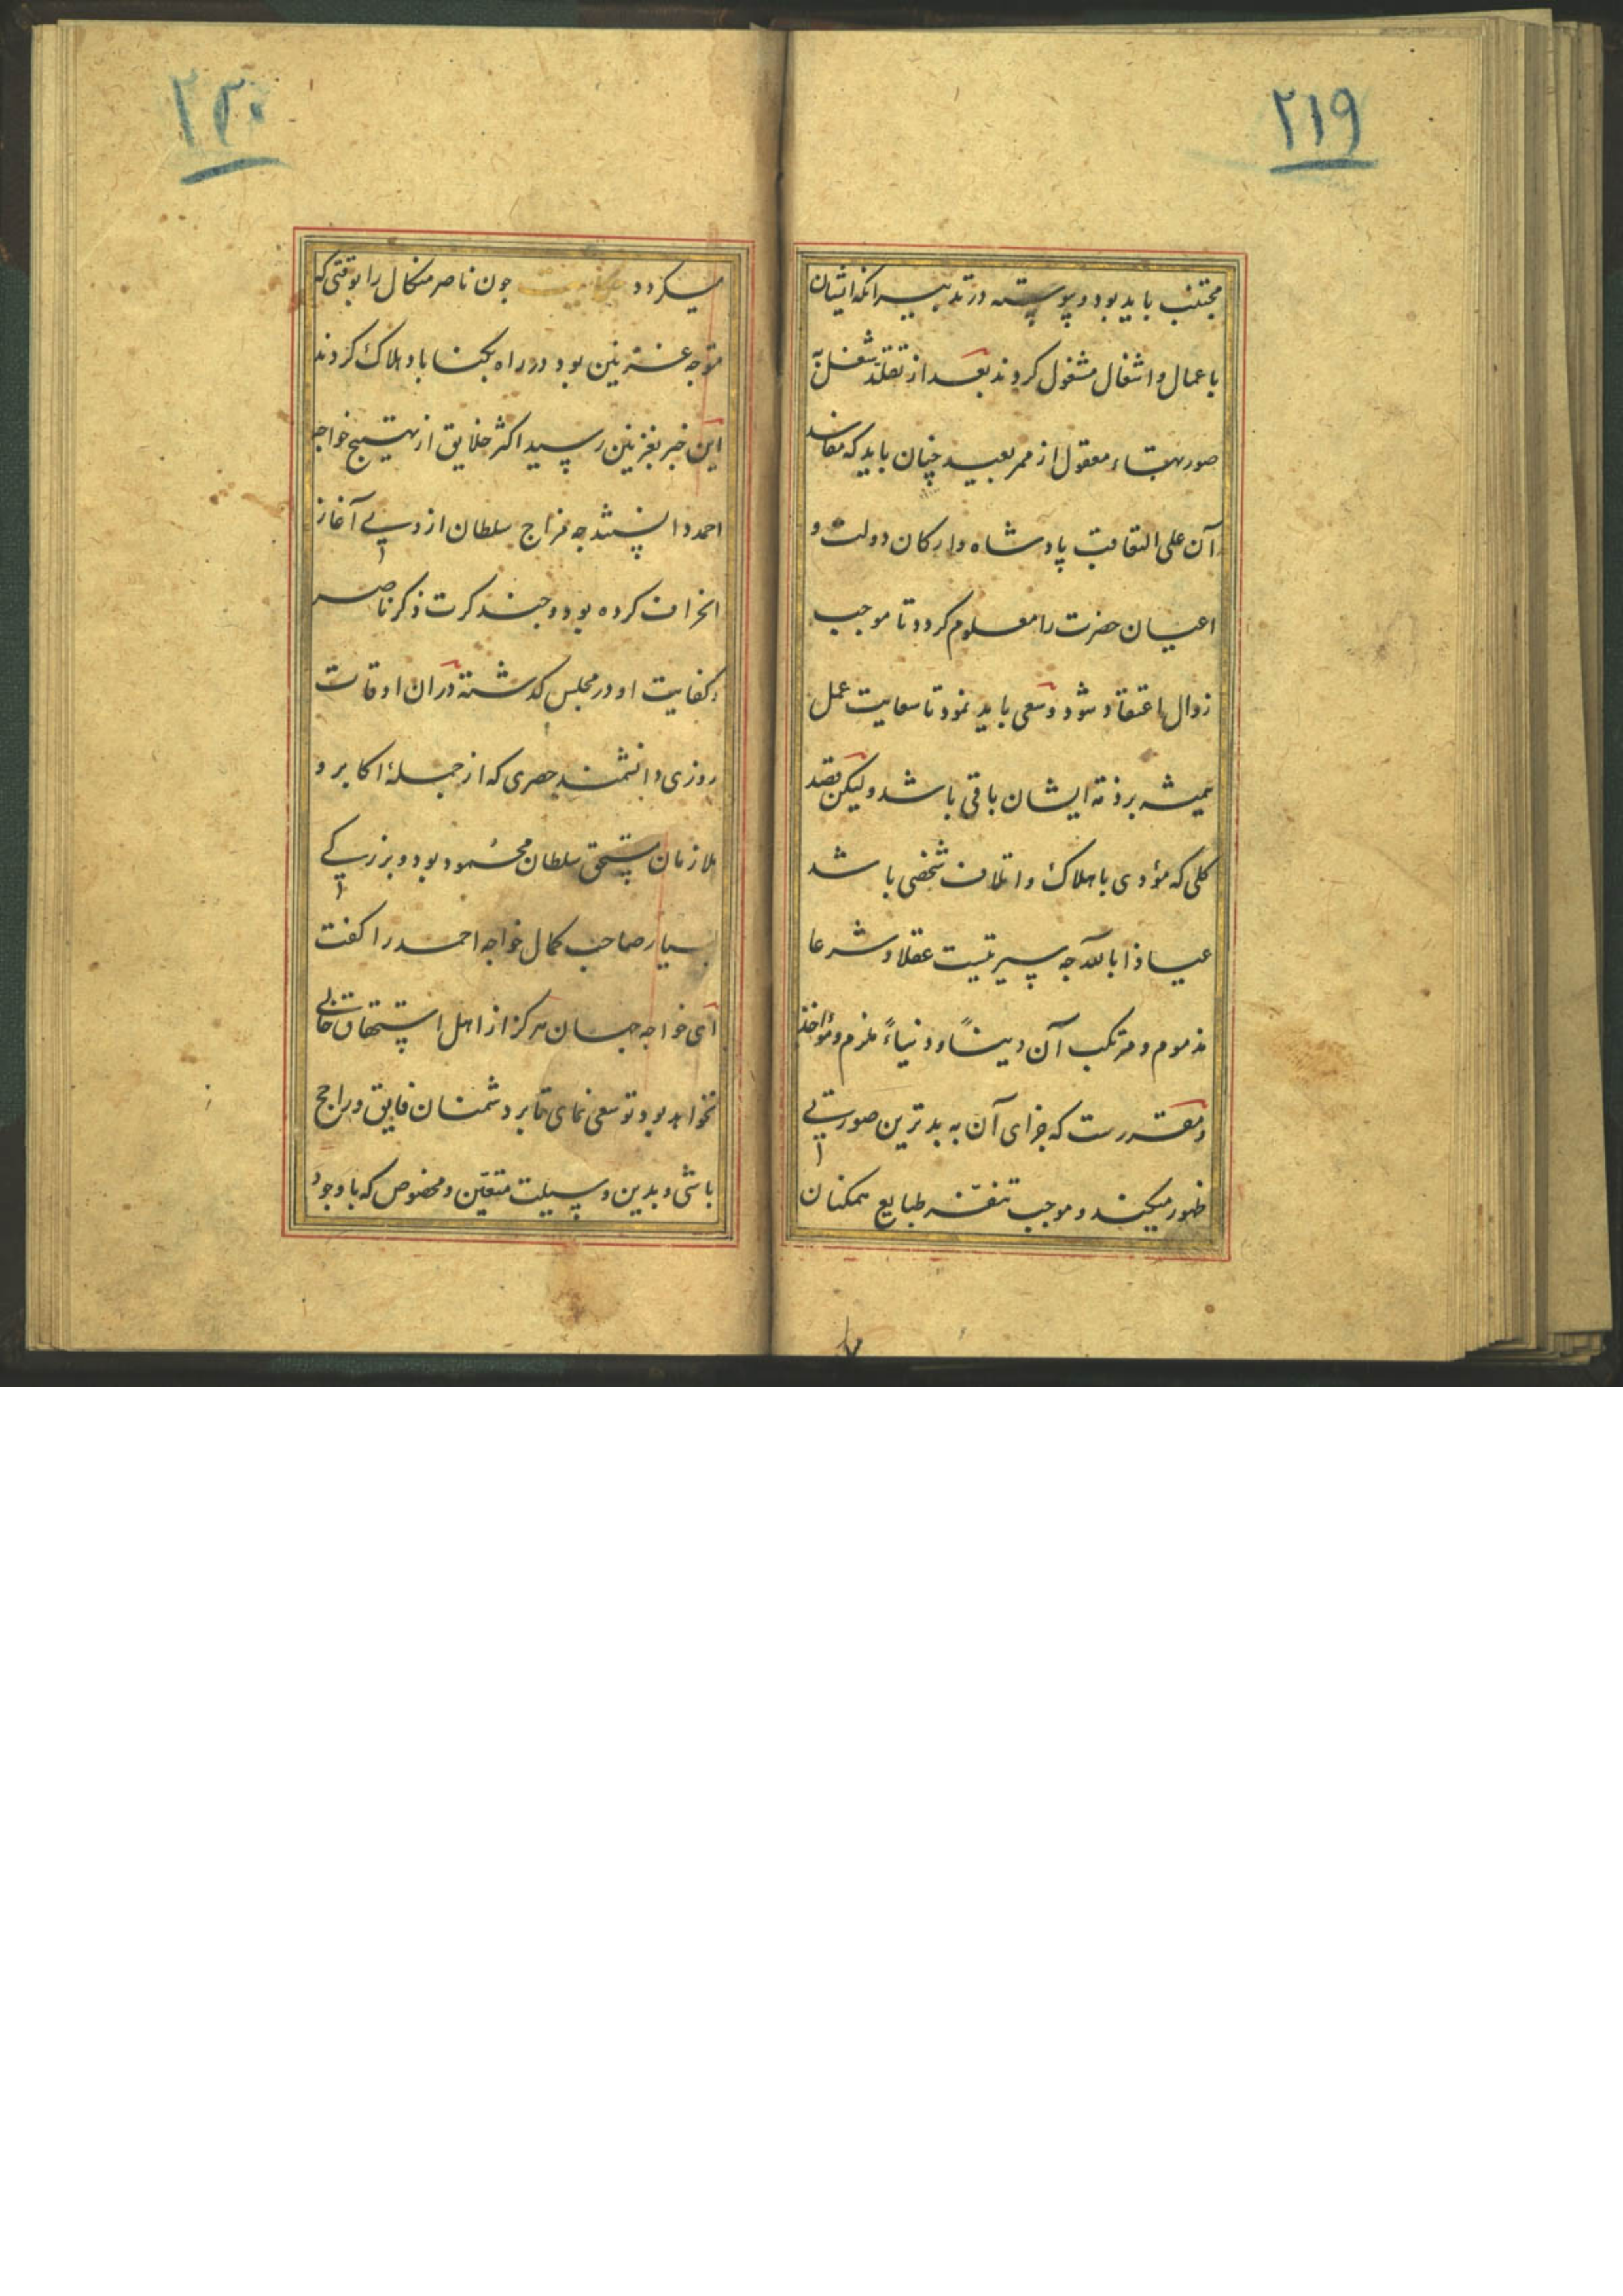 ۲۱۹
مجتنب باید بود و پیوسته در تدبیر آنکه ایشان
باعمال و اشغال مشغول کردند بعد از تقلد شغل به
صور معقول از ممر بعید چنان باید که مفاسد
آن علی التعاقب پادشاه و ارکان دولت و
اعیان حضرت را معلوم کردد تا موجب
زوال اعتقاد شود و سعی باید نمود تا سعایت عمل
همیشه بر ذمه ایشان باقی باشد ولیکن قصد
کلی که مؤدی باهلاک و اتلاف شخصی باشد
عیاذا بالله جه سیرتیست عقلا و شرعا
مذموم و مرتکب آن دیناً و دنیاءً ملزم و مؤاخذ
و مقررست که جزای آن به بدترین صورتی
ظهور میکند و موجب تنفر طبایع همکنان
۲۲۰
میکردد حکایت جون ناصر منکال را بوقتی که
متوجه غزنین بود در راه بکناباد هلاک کردند
این خبر بغزنین رسید اکثر خلایق از تهییج خواجه
احمد دانستند جه مزاج سلطان از وی آغاز
انحراف کرده بود و جند کرت ذکر ناصر
و کفایت او در مجلس کذشته دران اوقات
روزی دانشمند حصری که از جملهٔ اکابر و
ملازمان مستحق سلطان محمود بود و بزرکی
بسیار صاحب کمال خواجه احمد را کفت
ای خواجه جهان هرکز از اهل استحقاق خالی
نخواهد بود تو سعی نمای تا بر دشمنان فایق و راجح
باشی و بدین وسیلت متعین و مخصوص که با وجود